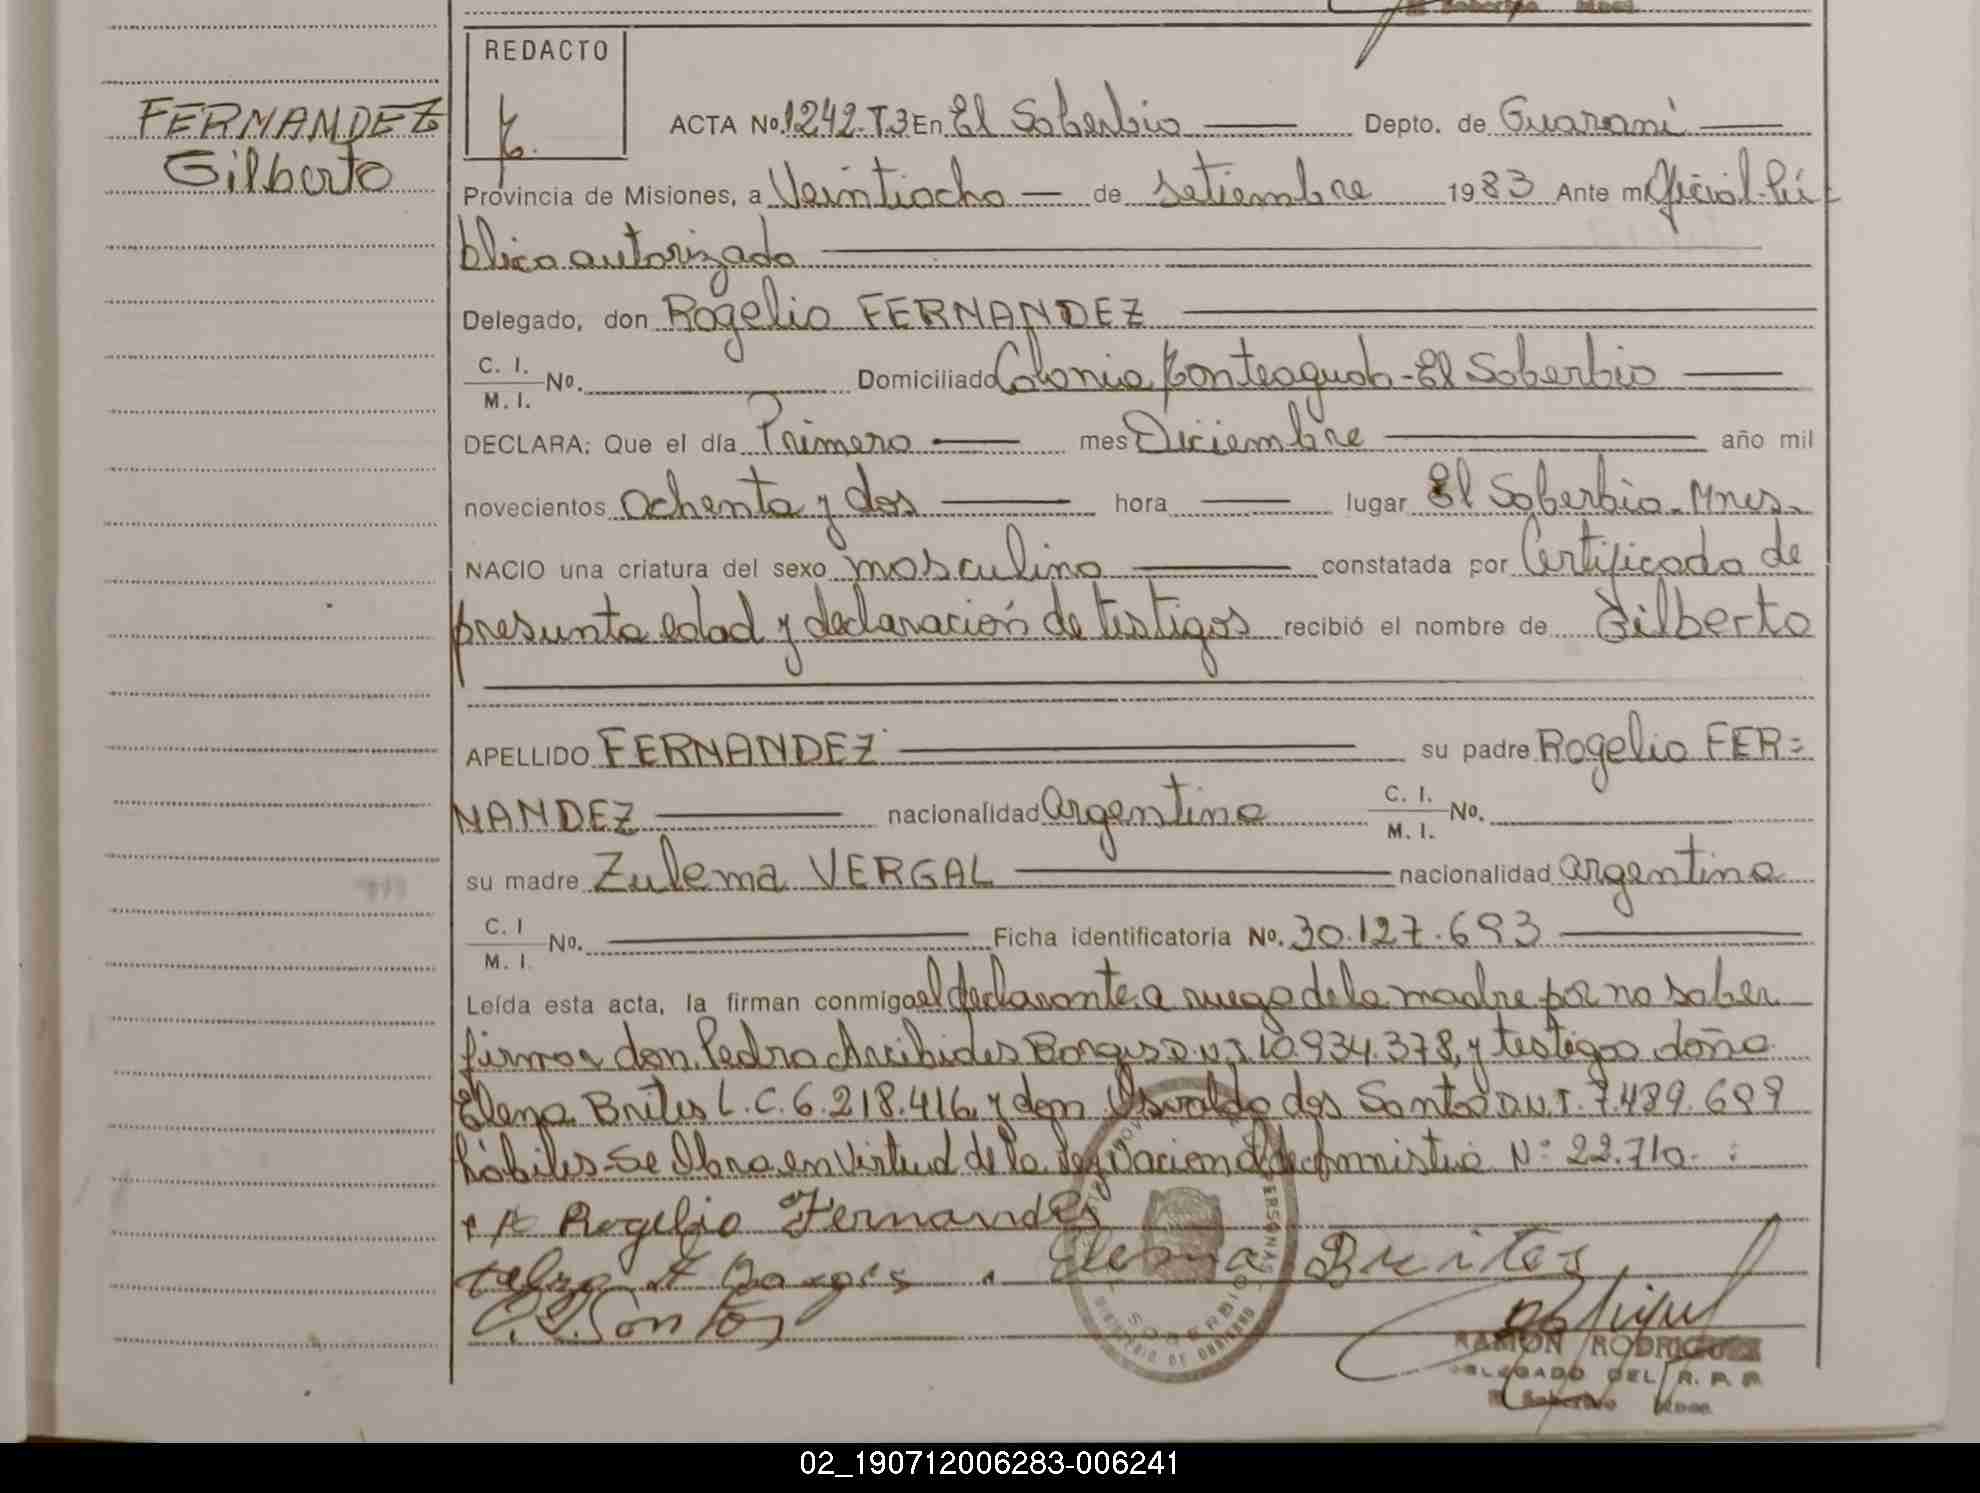 REDACTO
FERNANDEZ
Gilberto
ACTA Nº 1242.T.3 En El Soberbio Depto. de Guarani
Provincia de Misiones, a Veintiocho de setiembre 1983 Ante mi Oficial Pú-
blico autorizado
Delegado, don Rogelio FERNANDEZ
C. I.
M. I. Nº. Domiciliado Colonia Monteagudo-El Soberbio
DECLARA: Que el día Primero mes Diciembre año mil
novecientos ochenta y dos hora lugar El Soberbio-Mnes-
NACIO una criatura del sexo masculino constatada por Certificado de
presunta edad y declaración de testigos recibió el nombre de Gilberto
APELLIDO FERNANDEZ su padre Rogelio FER=
NANDEZ nacionalidad argentina C. I. M. I. Nº.
su madre Zulema VERGAL nacionalidad argentina
C. I M. I. Nº. Ficha identificatoria Nº. 30.127.693
Leída esta acta, la firman conmigo el declarante, a ruego de la madre por no saber
firmar don Pedro Borges D.N.I. 10.934.378, y testigos doña
Elena Brites L.C. 6.218.416, y don Osvaldo dos Santos D.N.I. 7.489.699
hábiles-Se labra en virtud de la de Amnistia Nº 22.710.
Rogelio Fernandes
Borges Elena Brites
Santos
RAMON RODRIGUEZ
DELEGADO DEL R. P. P.
El Soberbio Mnes.
02_190712006283-006241